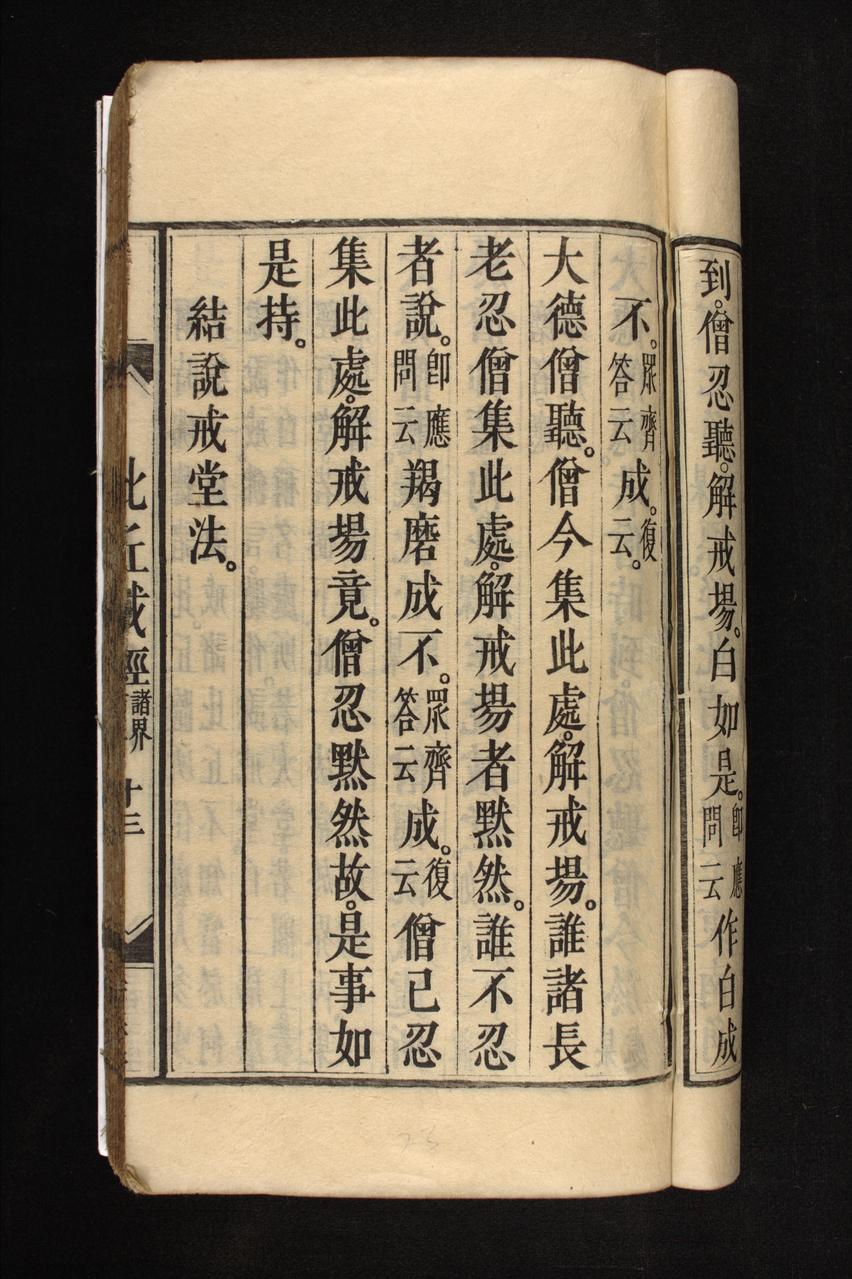 到。僧忍聽。解戒場。白如是。即應問云作白成
不。眾齊答云成。復云。
大德僧聽。僧今集此處。解戒場。誰諸長
老忍僧集此處。解戒場者默然。誰不忍
者說。即應問云羯磨成不。眾齊答云成。復云僧已忍
集此處。解戒場竟。僧忍默然故。是事如
是持。
結說戒堂法。
比丘戒經 諸界 十三